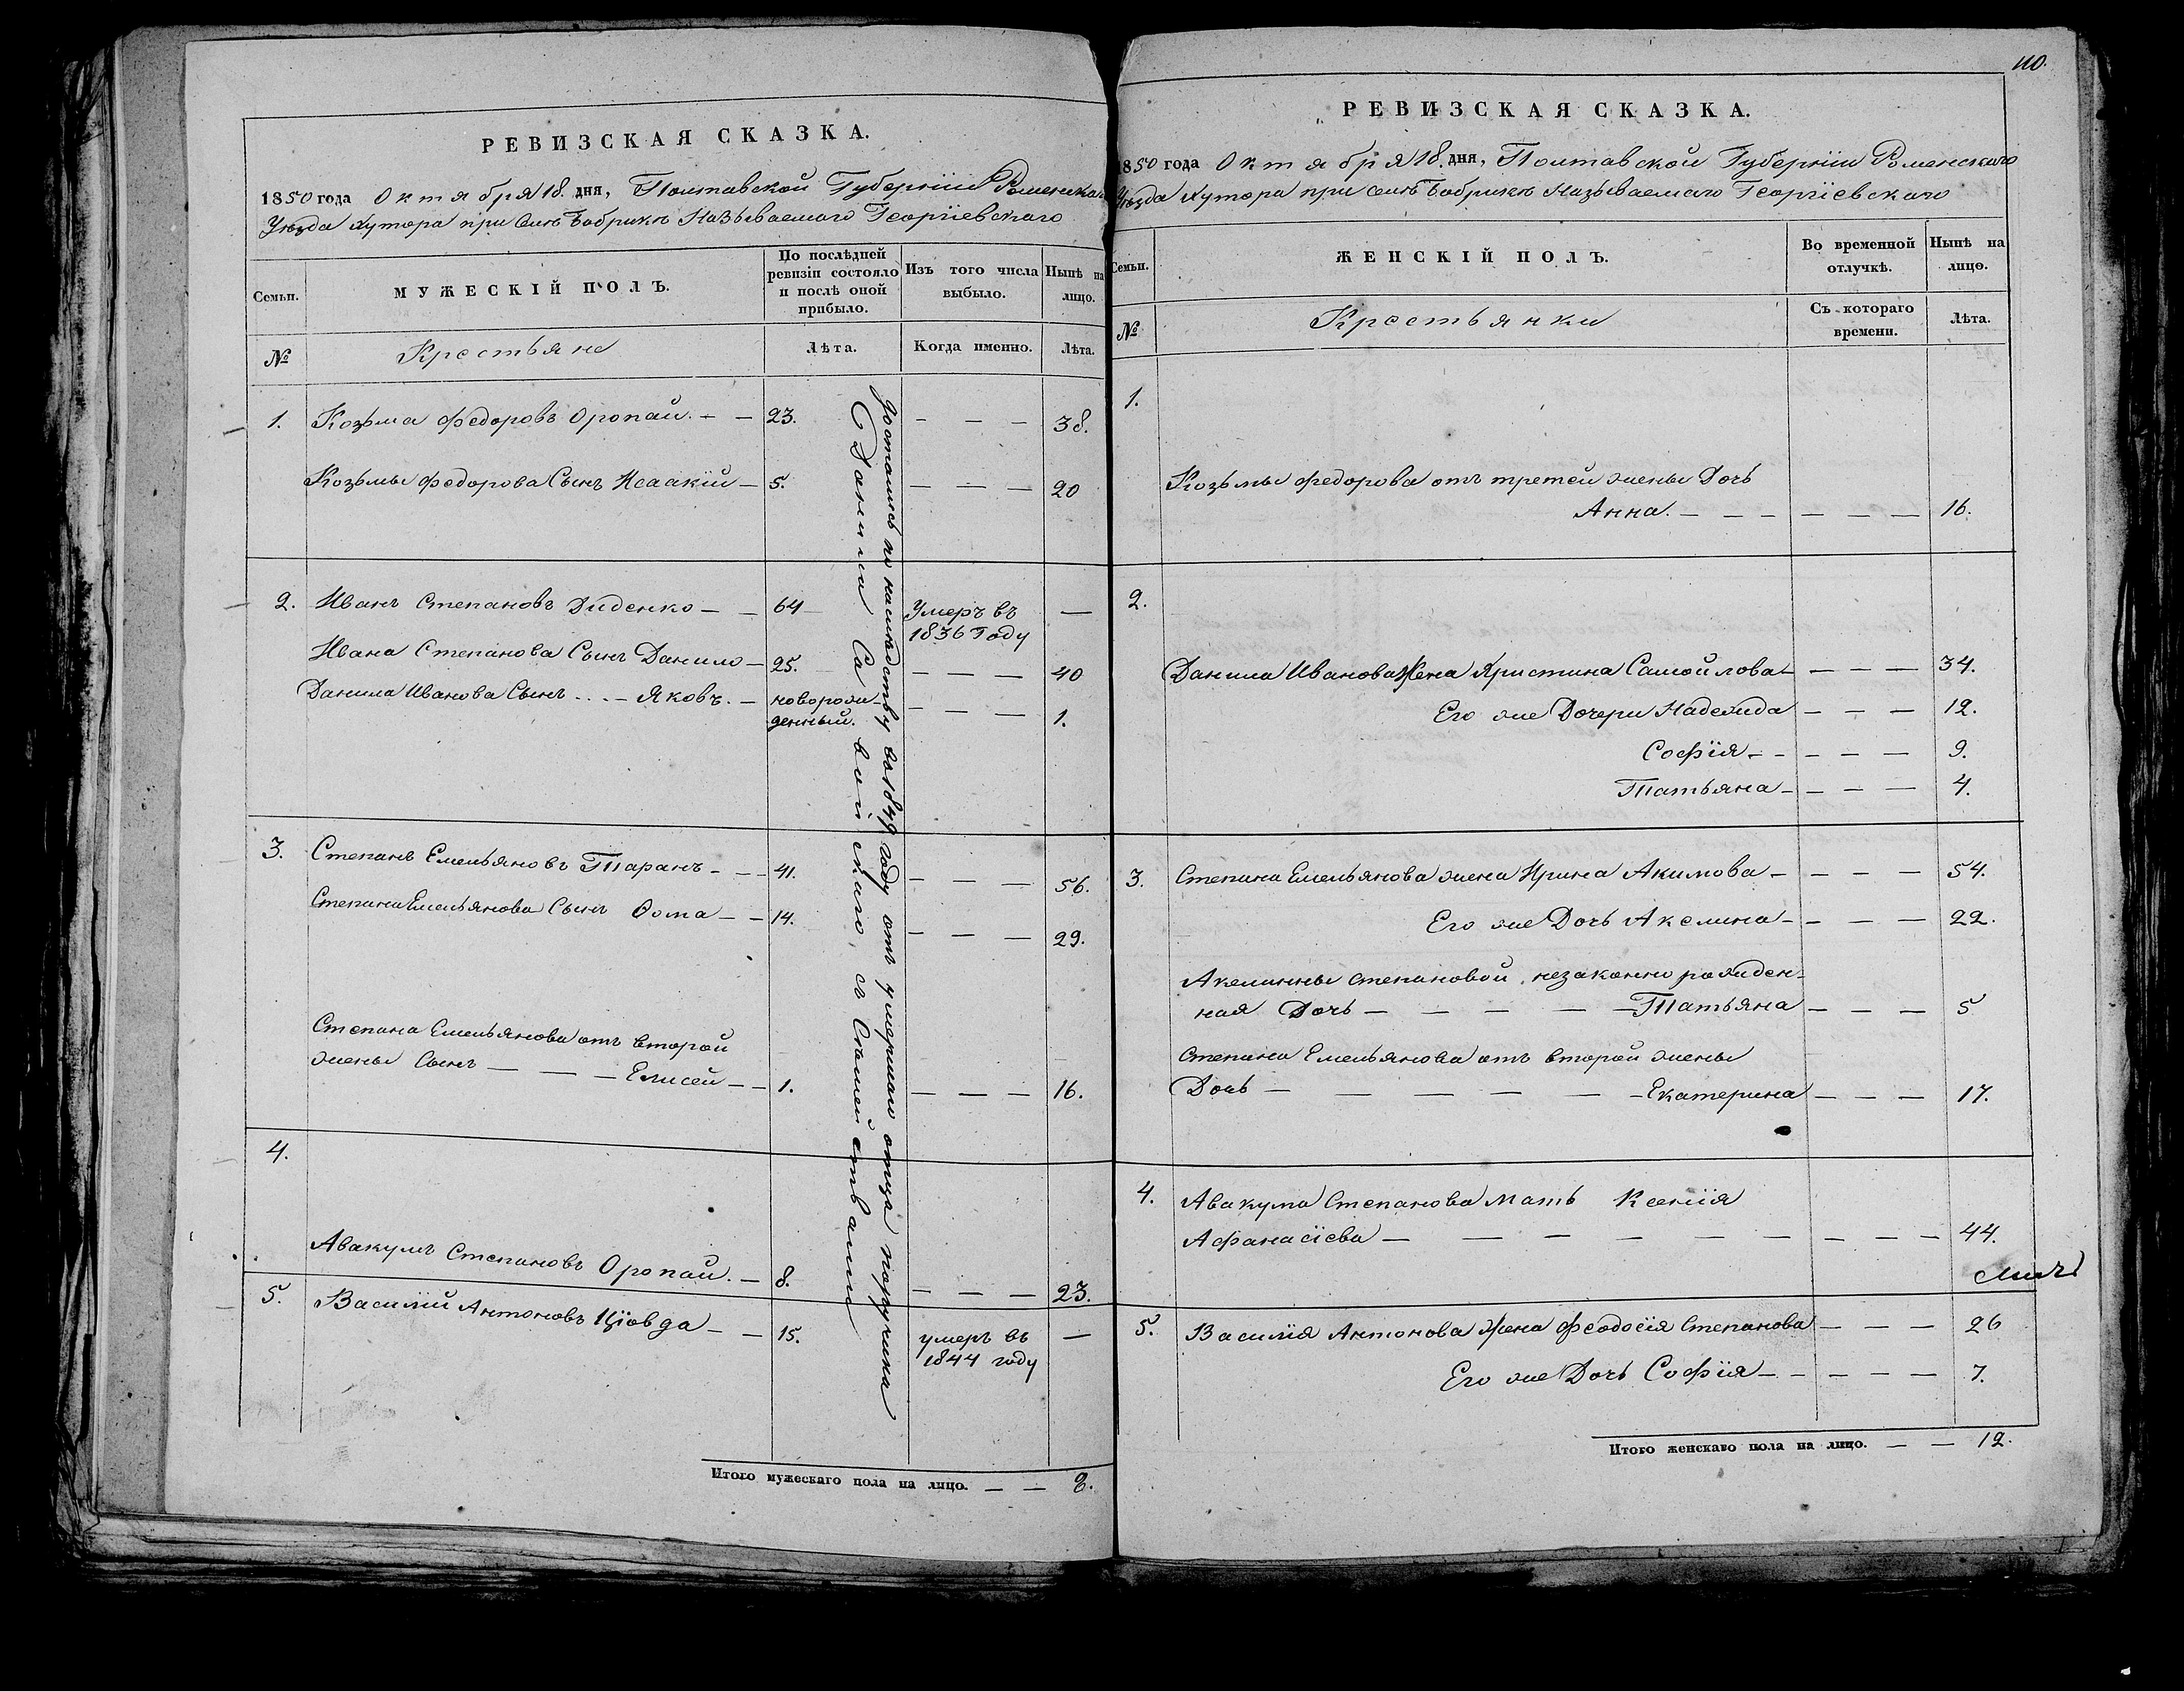 РЕВИЗСКАЯ СКАЗКА.
1850 года Октября 18. дня, Полтавской Губерніи Роменскаго
Уѣзда Хутора при Селѣ Бобрикѣ Называемаго Георгіевскаго
Семьи.
МУЖЕСКІЙ ПОЛЪ.
По послѣдней ревизіи состояло и послѣ оной прибыло.
Изъ того числа выбыло.
Нынѣ на лицо.
№
Крестьяне
Лѣта.
Когда именно.
Лѣта.
1. Козьма Федоровъ Оропай. — — 23. — — — 38.
Козьмы Федорова Сынъ Исаакій — 5. — — — 20
2. Иванъ Степановъ Диденко — — 64 Умеръ въ 1836 Году —
Ивана Степанова Сынъ Данило — 25. — — — 40
Данила Иванова Сынъ . . . — Яковъ. — новорожденный. — — — 1.
3. Степанъ Емельяновъ Таранъ — — — 41. — — — 56.
Степана Емельянова Сынъ Ѳома — — 14. — — — 29.
Степана Емельянова отъ второй
жены Сынъ — — — Елисей — — 1. — — — 16.
4.
Авакумъ Степановъ Оропай. — 8. — — — 23.
5. Василій Антоновъ Ціовда — — 15. умеръ въ 1844 году —
Достались по наслѣдству въ 1849 году отъ умершаго отца поручика
Данилы Савицкаго, съ Семействами
Итого мужескаго пола на лицо. — — 8.
110.
РЕВИЗСКАЯ СКАЗКА.
1850 года Октября 18. дня, Полтавской Губерніи Роменскаго
Уѣзда Хутора при Селѣ Бобрикѣ Называемаго Георгіевскаго
Семьи.
ЖЕНСКІЙ ПОЛЪ.
Во временной отлучкѣ.
Нынѣ на лицо.
№
Крестьянки
Съ котораго времени.
Лѣта.
1.
Козьмы Федорова отъ третей жены Дочь
Анна. — — — — — — 16.
2.
Данила Иванова Жена Христина Самойлова — — — — 34.
Его же Дочери Надежда — — — 12.
Софія — — — — — 9.
Татьяна — — — — 4.
3. Степана Емельянова жена Ирина Акимова — — — — 54.
Его же Дочь Акелина — — — — 22.
Акелинны Степановой, незаконно рожден-
ная Дочь — — — — — Татьяна — — — 5
Степана Емельянова отъ второй жены
Дочь — — — — — — Екатерина — — — 17.
4. Авакума Степанова Мать Ксенія
Афанасіева — — — — — — — — — — 44.
5. Василія Антонова Жена Феодосія Степанова — — — 26
Его же Дочь Софія — — — — — 7.
Итого женскаго пола на лицо. — — 12.